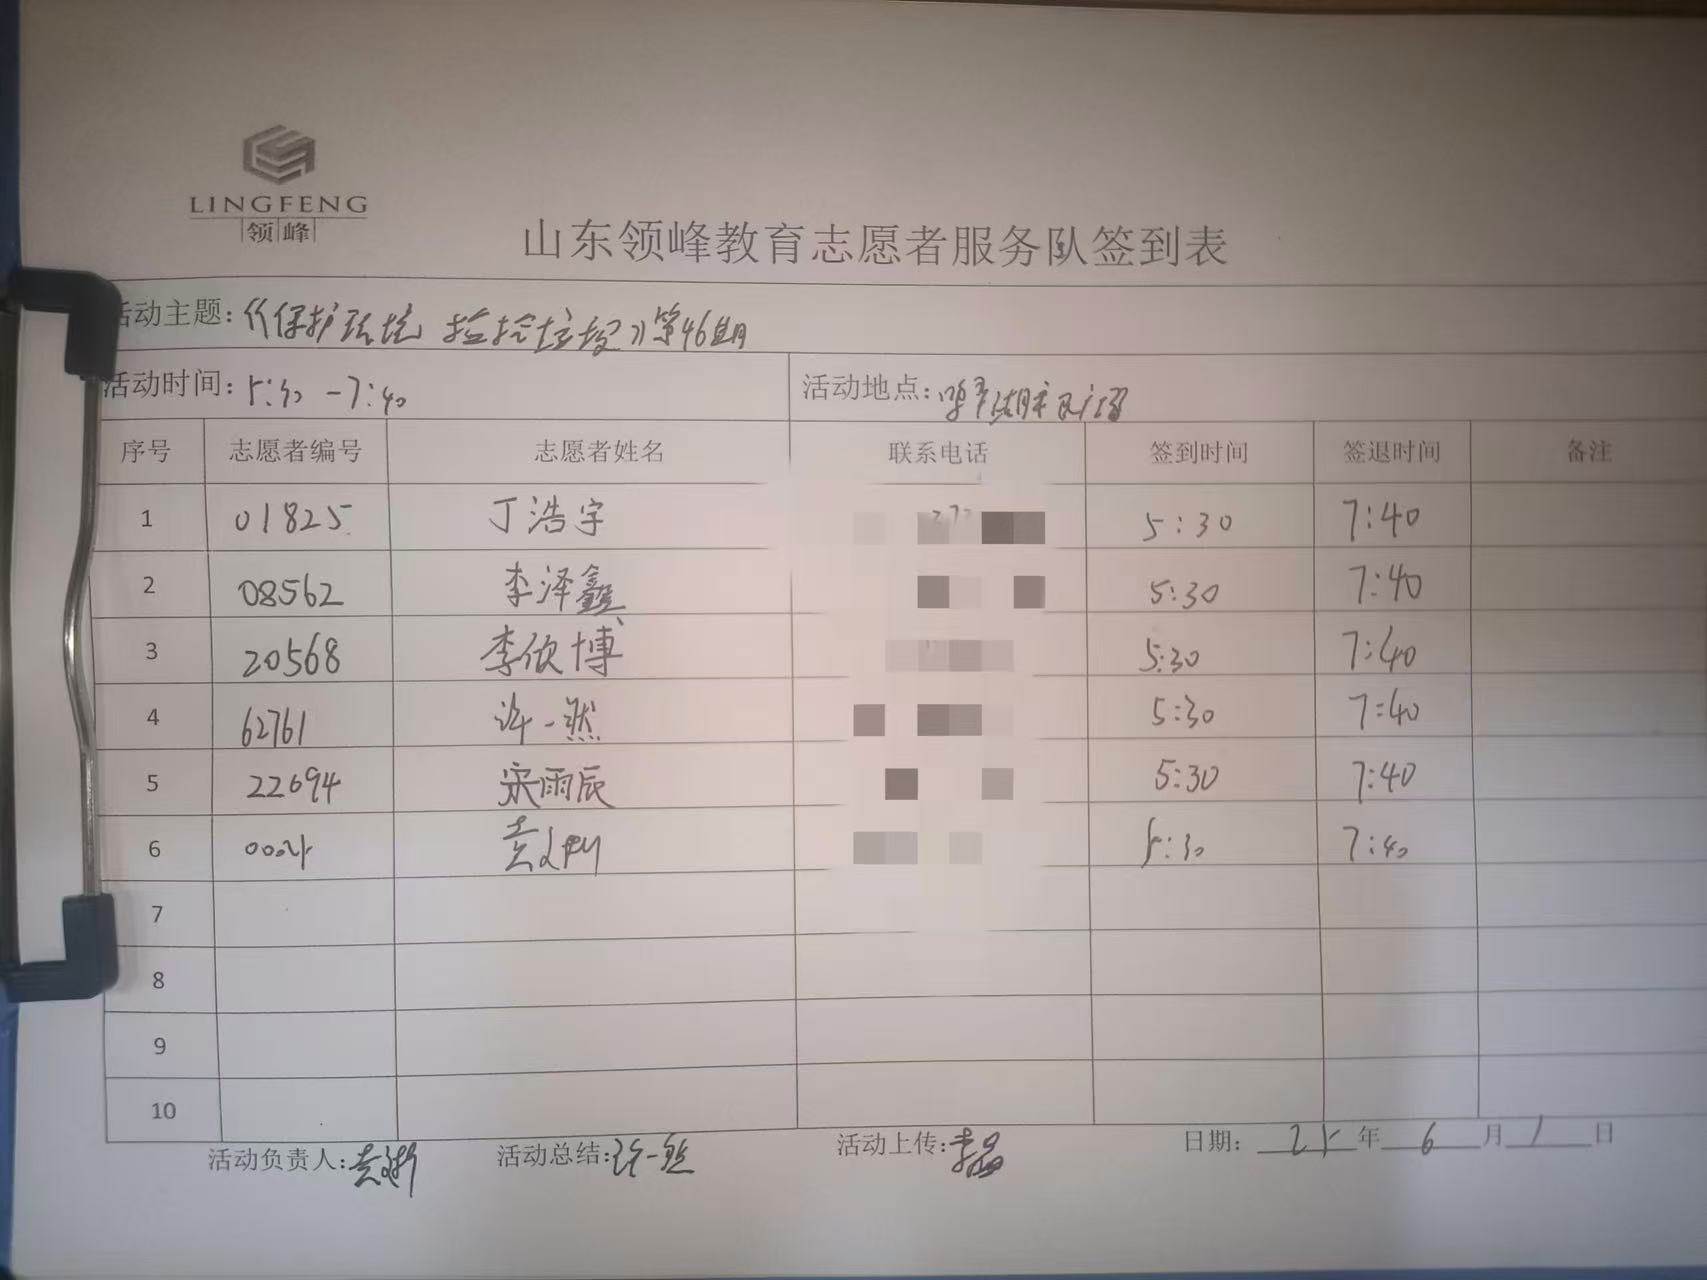 LINGFENG
领峰
山东领峰教育志愿者服务队签到表
活动主题:《保护环境 捡拾垃圾》第46期
活动时间:5:30-7:40 活动地点:市民广场
序号 志愿者编号 志愿者姓名 联系电话 签到时间 签退时间 备注
1 01825 丁浩宇 5:30 7:40
2 08562 李泽鑫 5:30 7:40
3 20568 李欣博 5:30 7:40
4 62761 许一然 5:30 7:40
5 22694 宋雨辰 5:30 7:40
6 袁 5:30 7:40
7
8
9
10
活动负责人:袁 活动总结:许一然 活动上传:李 日期:25年6月1日